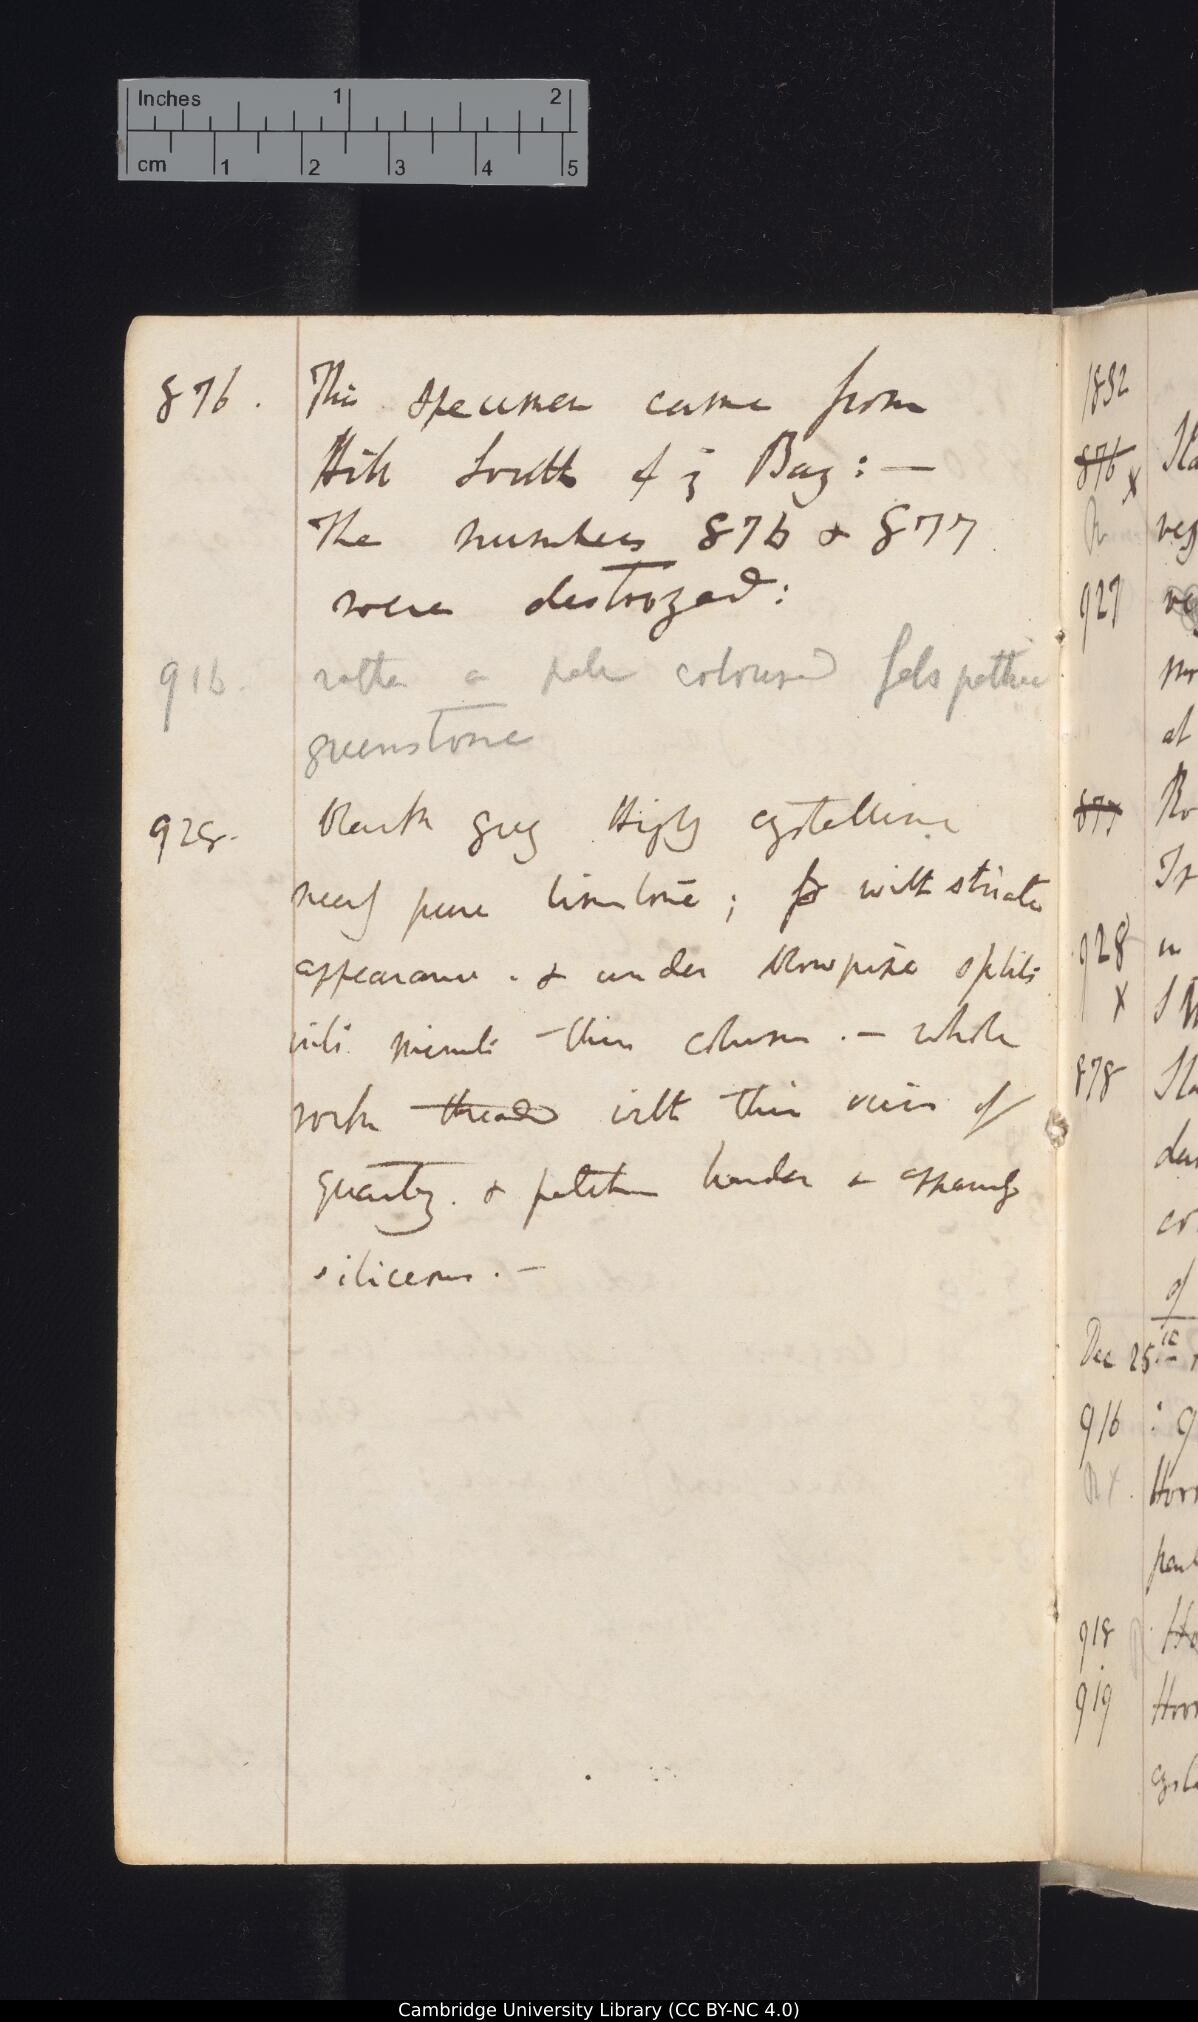 Inches 1 2
cm 1 2 3 4 5
876. This specimen came from
Hill South of ye Bay: —
The numbers 876 & 877
were destroyed:
916. rather a pale coloured felspathic
greenstone
928. blackish grey Highly crystalline
nearly pure limestone; with striate
appearance. & under blowpipe splits
into minute thin columns. — whole
rock threaded with thin veins of
quartz. & patches harder & apparently
siliceous. —
1832
876 x
R
927
877
928
x
878
of
Dec 25th
916
Rx
918
919
Cambridge University Library (CC BY-NC 4.0)